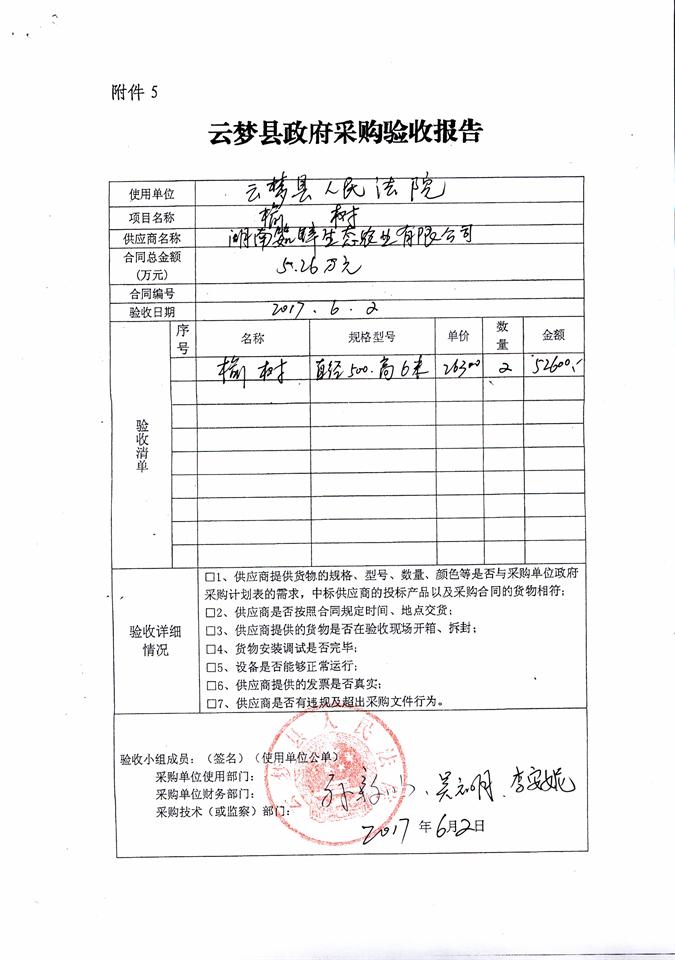 附件 5
云梦县政府采购验收报告
使用单位 云梦县人民法院
项目名称 榆 树
供应商名称 湖南 生态农业有限公司
合同总金额（万元） 5.26万元
合同编号
验收日期 2017.6.2
验收清单
序号 名称 规格型号 单价 数量 金额
榆树 直径500.高6米 26300 2 52600.
验收详细情况
□1、供应商提供货物的规格、型号、数量、颜色等是否与采购单位政府
采购计划表的需求，中标供应商的投标产品以及采购合同的货物相符；
□2、供应商是否按照合同规定时间、地点交货；
□3、供应商提供的货物是否在验收现场开箱、拆封；
□4、货物安装调试是否完毕；
□5、设备是否能够正常运行；
□6、供应商提供的发票是否真实；
□7、供应商是否有违规及超出采购文件行为。
验收小组成员：（签名）（使用单位公单）
采购单位使用部门：
采购单位财务部门：
采购技术（或监察）部门：
2017年6月2日